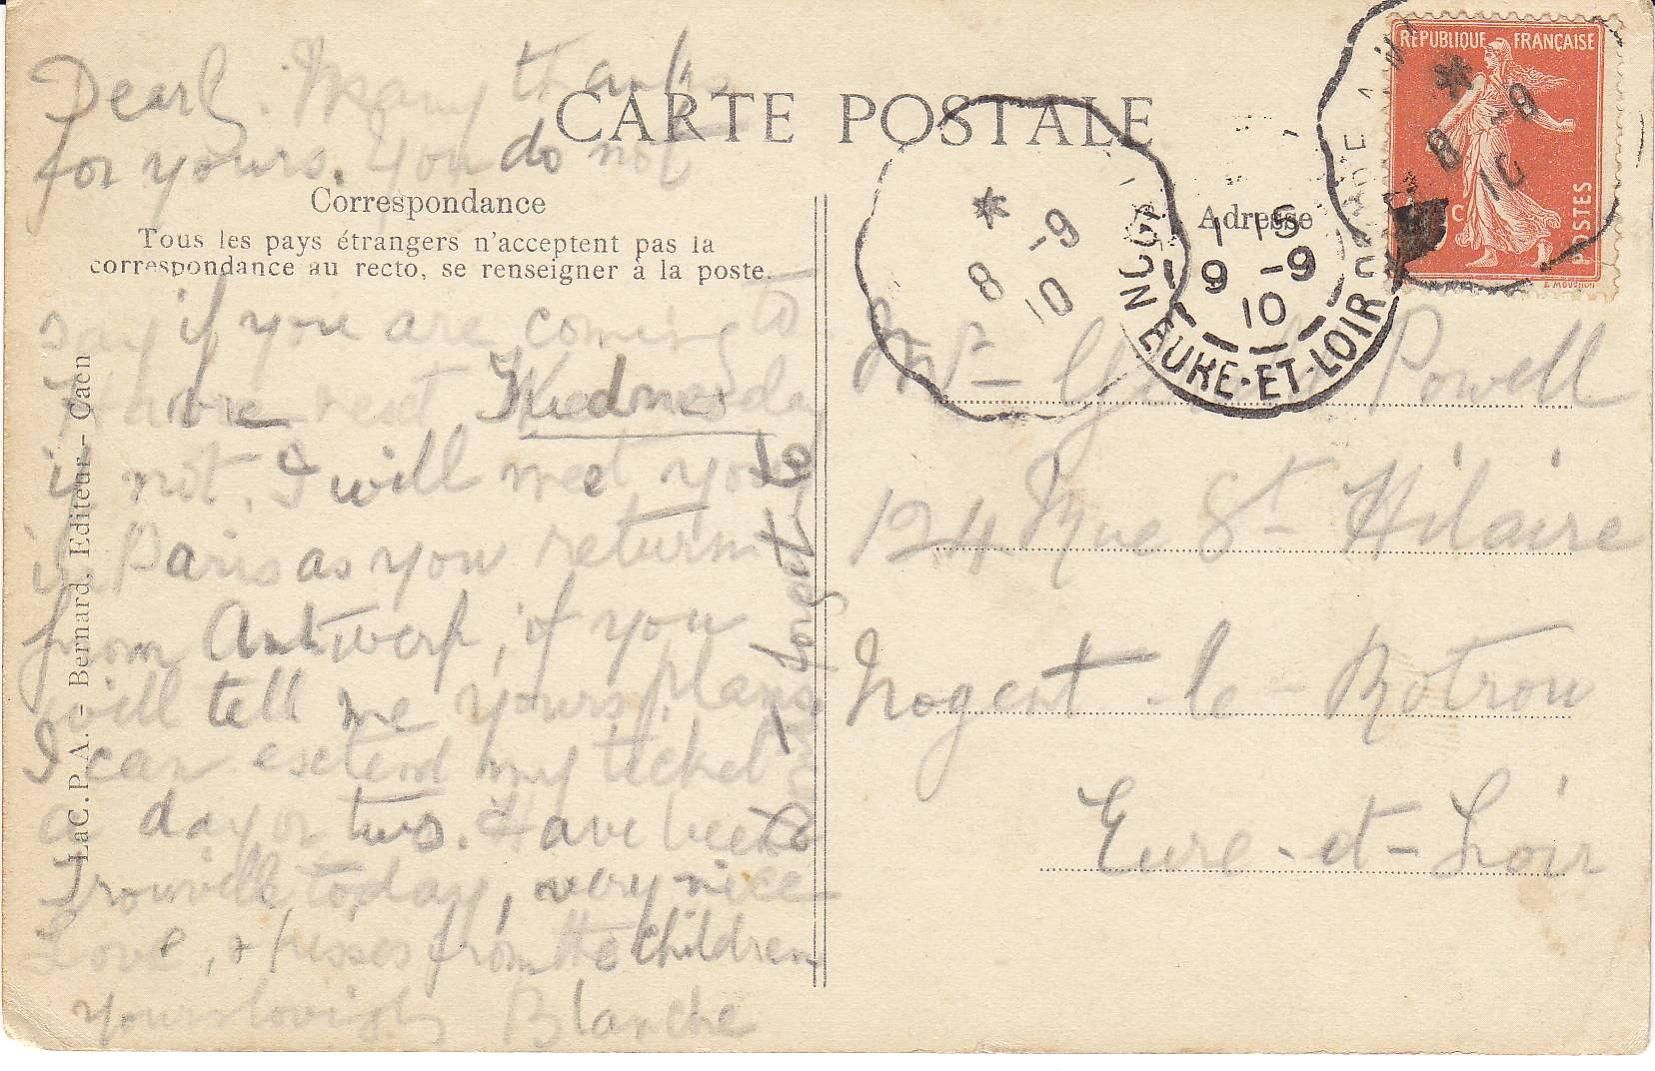 Dearl. Many thanks
CARTE POSTALE
for yours. You do not
Correspondance
Tous les pays étrangers n'acceptent pas la
correspondance au recto, se renseigner à la poste.
say if you are coming to
Havre next Wednesday
if not. I will meet you
in Paris as you return
from Antwerp, if you
will tell me yours plans
I can esctend my ticket
a day or two. Have been to
Trouville today, very nice
Love, & kisses from the children
yours lovigly Blanche
forget
LaC.P.A. - Bernard, Editeur - Caen
Adresse
Powell
124 Rue St Hilaire
Nogent-le-Rotrou
Eure-et-Loir
RÉPUBLIQUE FRANÇAISE
POSTES
* 8 -9 10
* 8 -9 10
1 15
9 -9
10
EURE-ET-LOIR